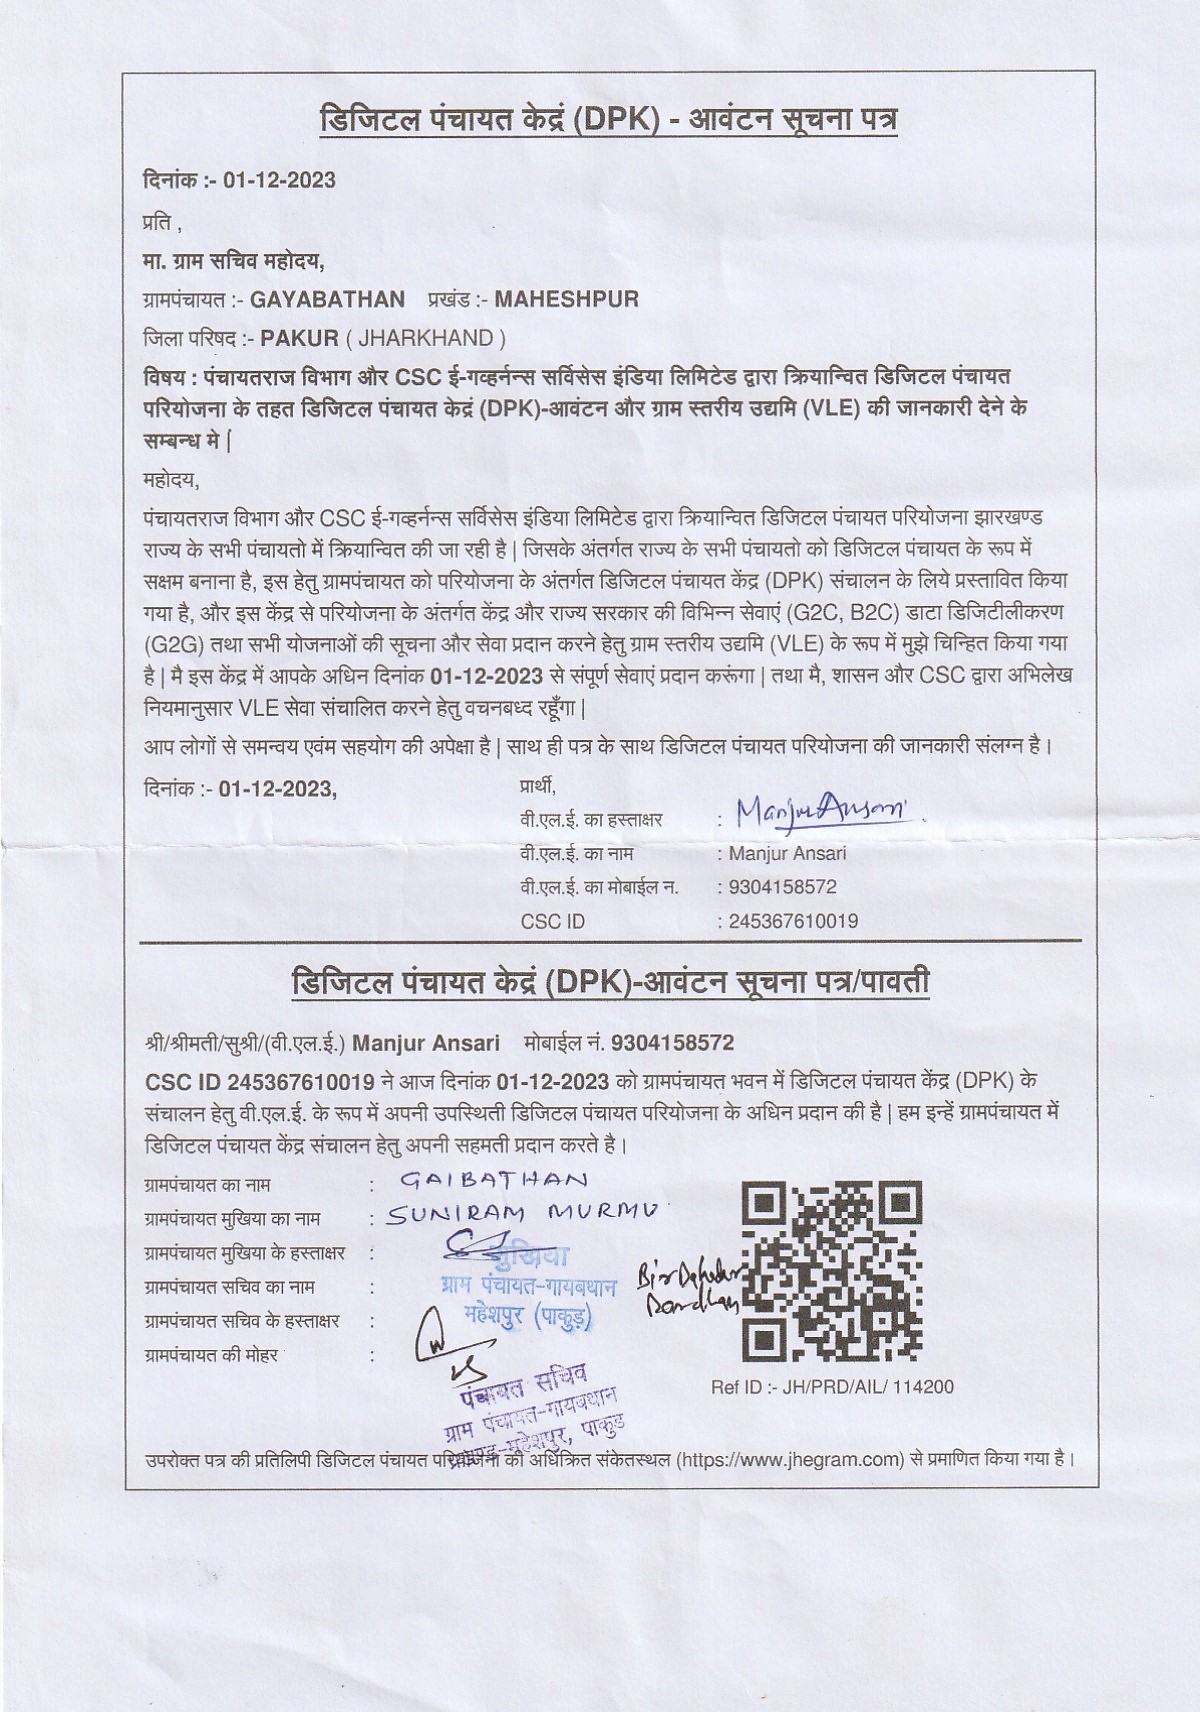 डिजिटल पंचायत केद्रं (DPK) - आवंटन सूचना पत्र
दिनांक :- 01-12-2023
प्रति ,
मा. ग्राम सचिव महोदय,
ग्रामपंचायत :- GAYABATHAN प्रखंड :- MAHESHPUR
जिला परिषद :- PAKUR ( JHARKHAND )
विषय : पंचायतराज विभाग और CSC ई-गव्हर्नन्स सर्विसेस इंडिया लिमिटेड द्वारा क्रियान्वित डिजिटल पंचायत
परियोजना के तहत डिजिटल पंचायत केद्रं (DPK)-आवंटन और ग्राम स्तरीय उद्यमि (VLE) की जानकारी देने के
सम्बन्ध मे |
महोदय,
पंचायतराज विभाग और CSC ई-गव्हर्नन्स सर्विसेस इंडिया लिमिटेड द्वारा क्रियान्वित डिजिटल पंचायत परियोजना झारखण्ड
राज्य के सभी पंचायतो में क्रियान्वित की जा रही है | जिसके अंतर्गत राज्य के सभी पंचायतो को डिजिटल पंचायत के रूप में
सक्षम बनाना है, इस हेतु ग्रामपंचायत को परियोजना के अंतर्गत डिजिटल पंचायत केंद्र (DPK) संचालन के लिये प्रस्तावित किया
गया है, और इस केंद्र से परियोजना के अंतर्गत केंद्र और राज्य सरकार की विभिन्न सेवाएं (G2C, B2C) डाटा डिजिटीलीकरण
(G2G) तथा सभी योजनाओं की सूचना और सेवा प्रदान करने हेतु ग्राम स्तरीय उद्यमि (VLE) के रूप में मुझे चिन्हित किया गया
है | मै इस केंद्र में आपके अधिन दिनांक 01-12-2023 से संपूर्ण सेवाएं प्रदान करूंगा | तथा मै, शासन और CSC द्वारा अभिलेख
नियमानुसार VLE सेवा संचालित करने हेतु वचनबध्द रहूँगा |
आप लोगों से समन्वय एवंम सहयोग की अपेक्षा है | साथ ही पत्र के साथ डिजिटल पंचायत परियोजना की जानकारी संलग्न है ।
दिनांक :- 01-12-2023, प्रार्थी,
वी.एल.ई. का हस्ताक्षर : Manjur Ansari
वी.एल.ई. का नाम : Manjur Ansari
वी.एल.ई. का मोबाईल न. : 9304158572
CSC ID : 245367610019
डिजिटल पंचायत केद्रं (DPK)-आवंटन सूचना पत्र/पावती
श्री/श्रीमती/सुश्री/(वी.एल.ई.) Manjur Ansari मोबाईल नं. 9304158572
CSC ID 245367610019 ने आज दिनांक 01-12-2023 को ग्रामपंचायत भवन में डिजिटल पंचायत केंद्र (DPK) के
संचालन हेतु वी.एल.ई. के रूप में अपनी उपस्थिती डिजिटल पंचायत परियोजना के अधिन प्रदान की है | हम इन्हें ग्रामपंचायत में
डिजिटल पंचायत केंद्र संचालन हेतु अपनी सहमती प्रदान करते है ।
ग्रामपंचायत का नाम : GAIBATHAN
ग्रामपंचायत मुखिया का नाम : SUNIRAM MURMU
ग्रामपंचायत मुखिया के हस्ताक्षर : मुखिया
ग्रामपंचायत सचिव का नाम : ग्राम पंचायत-गायबथान
ग्रामपंचायत सचिव के हस्ताक्षर : महेशपुर (पाकुड़)
ग्रामपंचायत की मोहर :
पंचायत सचिव
ग्राम पंचायत-गायबथान
प्रखण्ड-महेशपुर, पाकुड
Ref ID :- JH/PRD/AIL/ 114200
उपरोक्त पत्र की प्रतिलिपी डिजिटल पंचायत परियोजना की अधिक्रित संकेतस्थल (https://www.jhegram.com) से प्रमाणित किया गया है ।